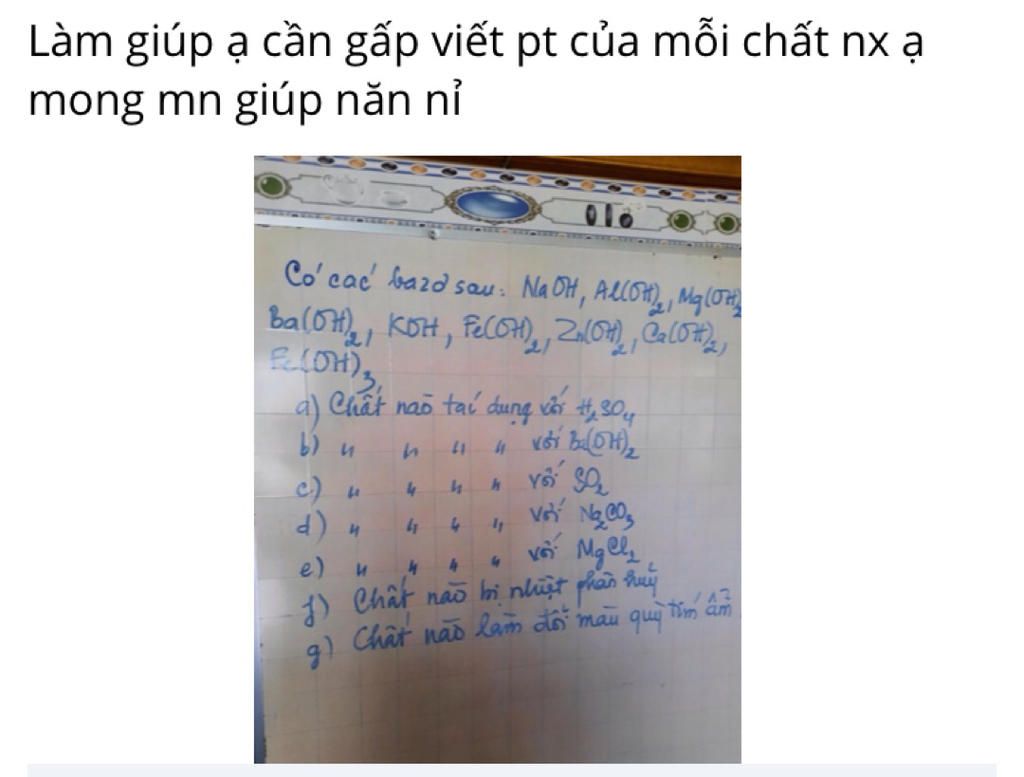 Làm giúp ạ cần gấp viết pt của mỗi chất nx ạ
mong mn giúp năn nỉ
Có các bazơ sau: NaOH, Al(OH)2, Mg(OH)2
Ba(OH)2, KOH, Fe(OH)2, Zn(OH)2, Ca(OH)2,
Fe(OH)3
a) Chất nào tác dụng với H2SO4
b) " " " " với Ba(OH)2
c) " " " " với SO2
d) " " " " với Na2CO3
e) " " " " với MgCl2
f) Chất nào bị nhiệt phân huỷ
g) Chất nào làm đổi màu quỳ tím ẩm